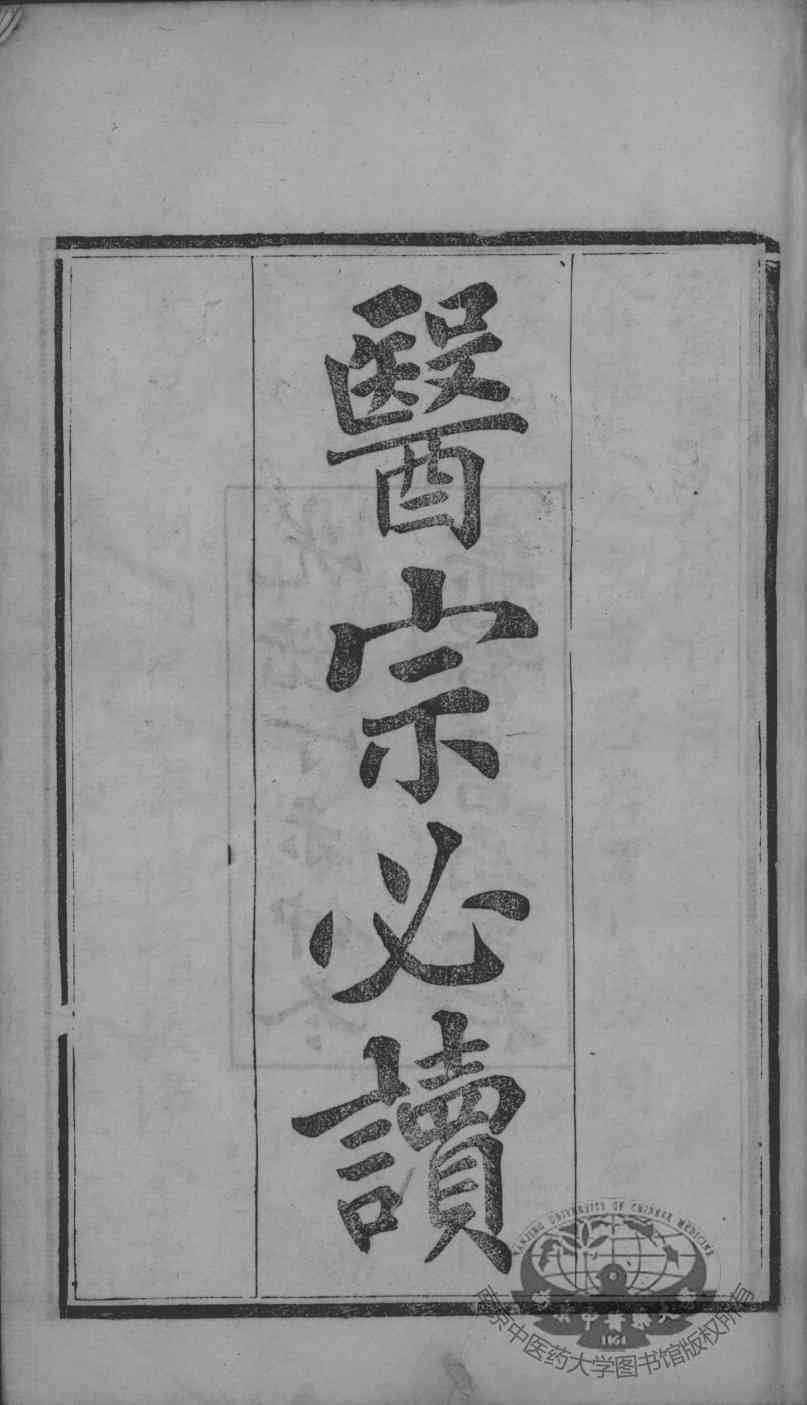 醫宗必讀
NANJING UNIVERSITY OF CHINESE MEDICINE
南京中醫藥大學
1954
南京中医药大学图书馆版权所有